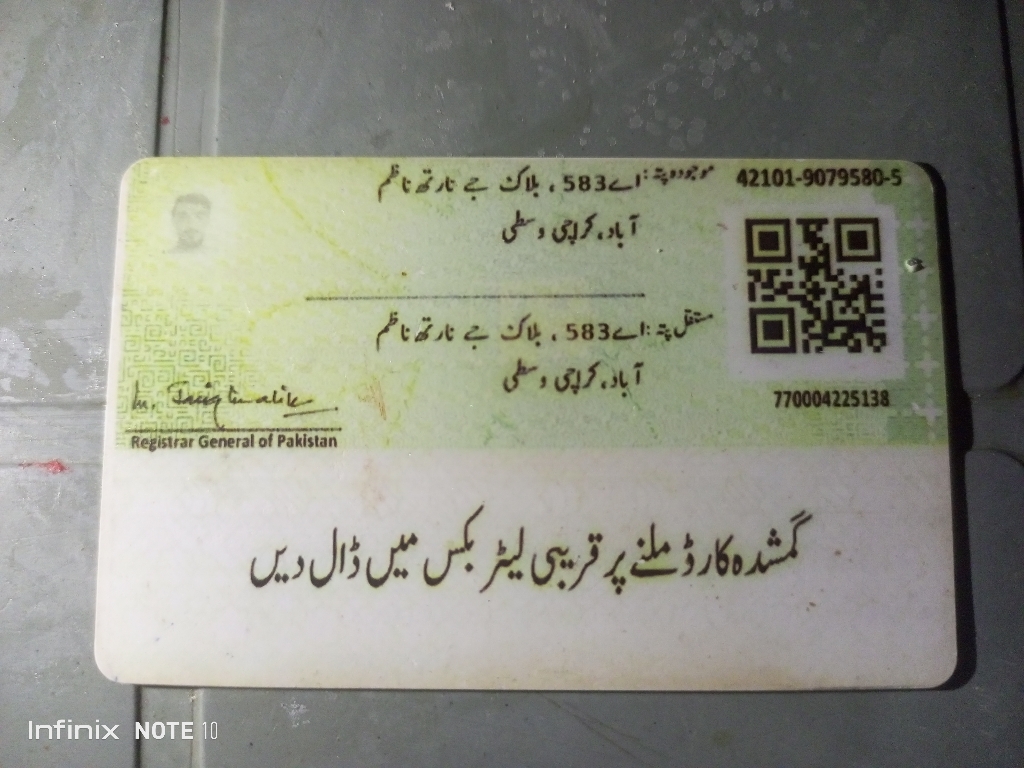 موجودہ پتہ: اے583، بلاک جے نارتھ ناظم
آباد، کراچی وسطی
مستقل پتہ: اے583، بلاک جے نارتھ ناظم
آباد، کراچی وسطی
42101-9079580-5
770004225138
Registrar General of Pakistan
گمشدہ کارڈ ملنے پر قریبی لیٹر بکس میں ڈال دیں
Infinix NOTE 10